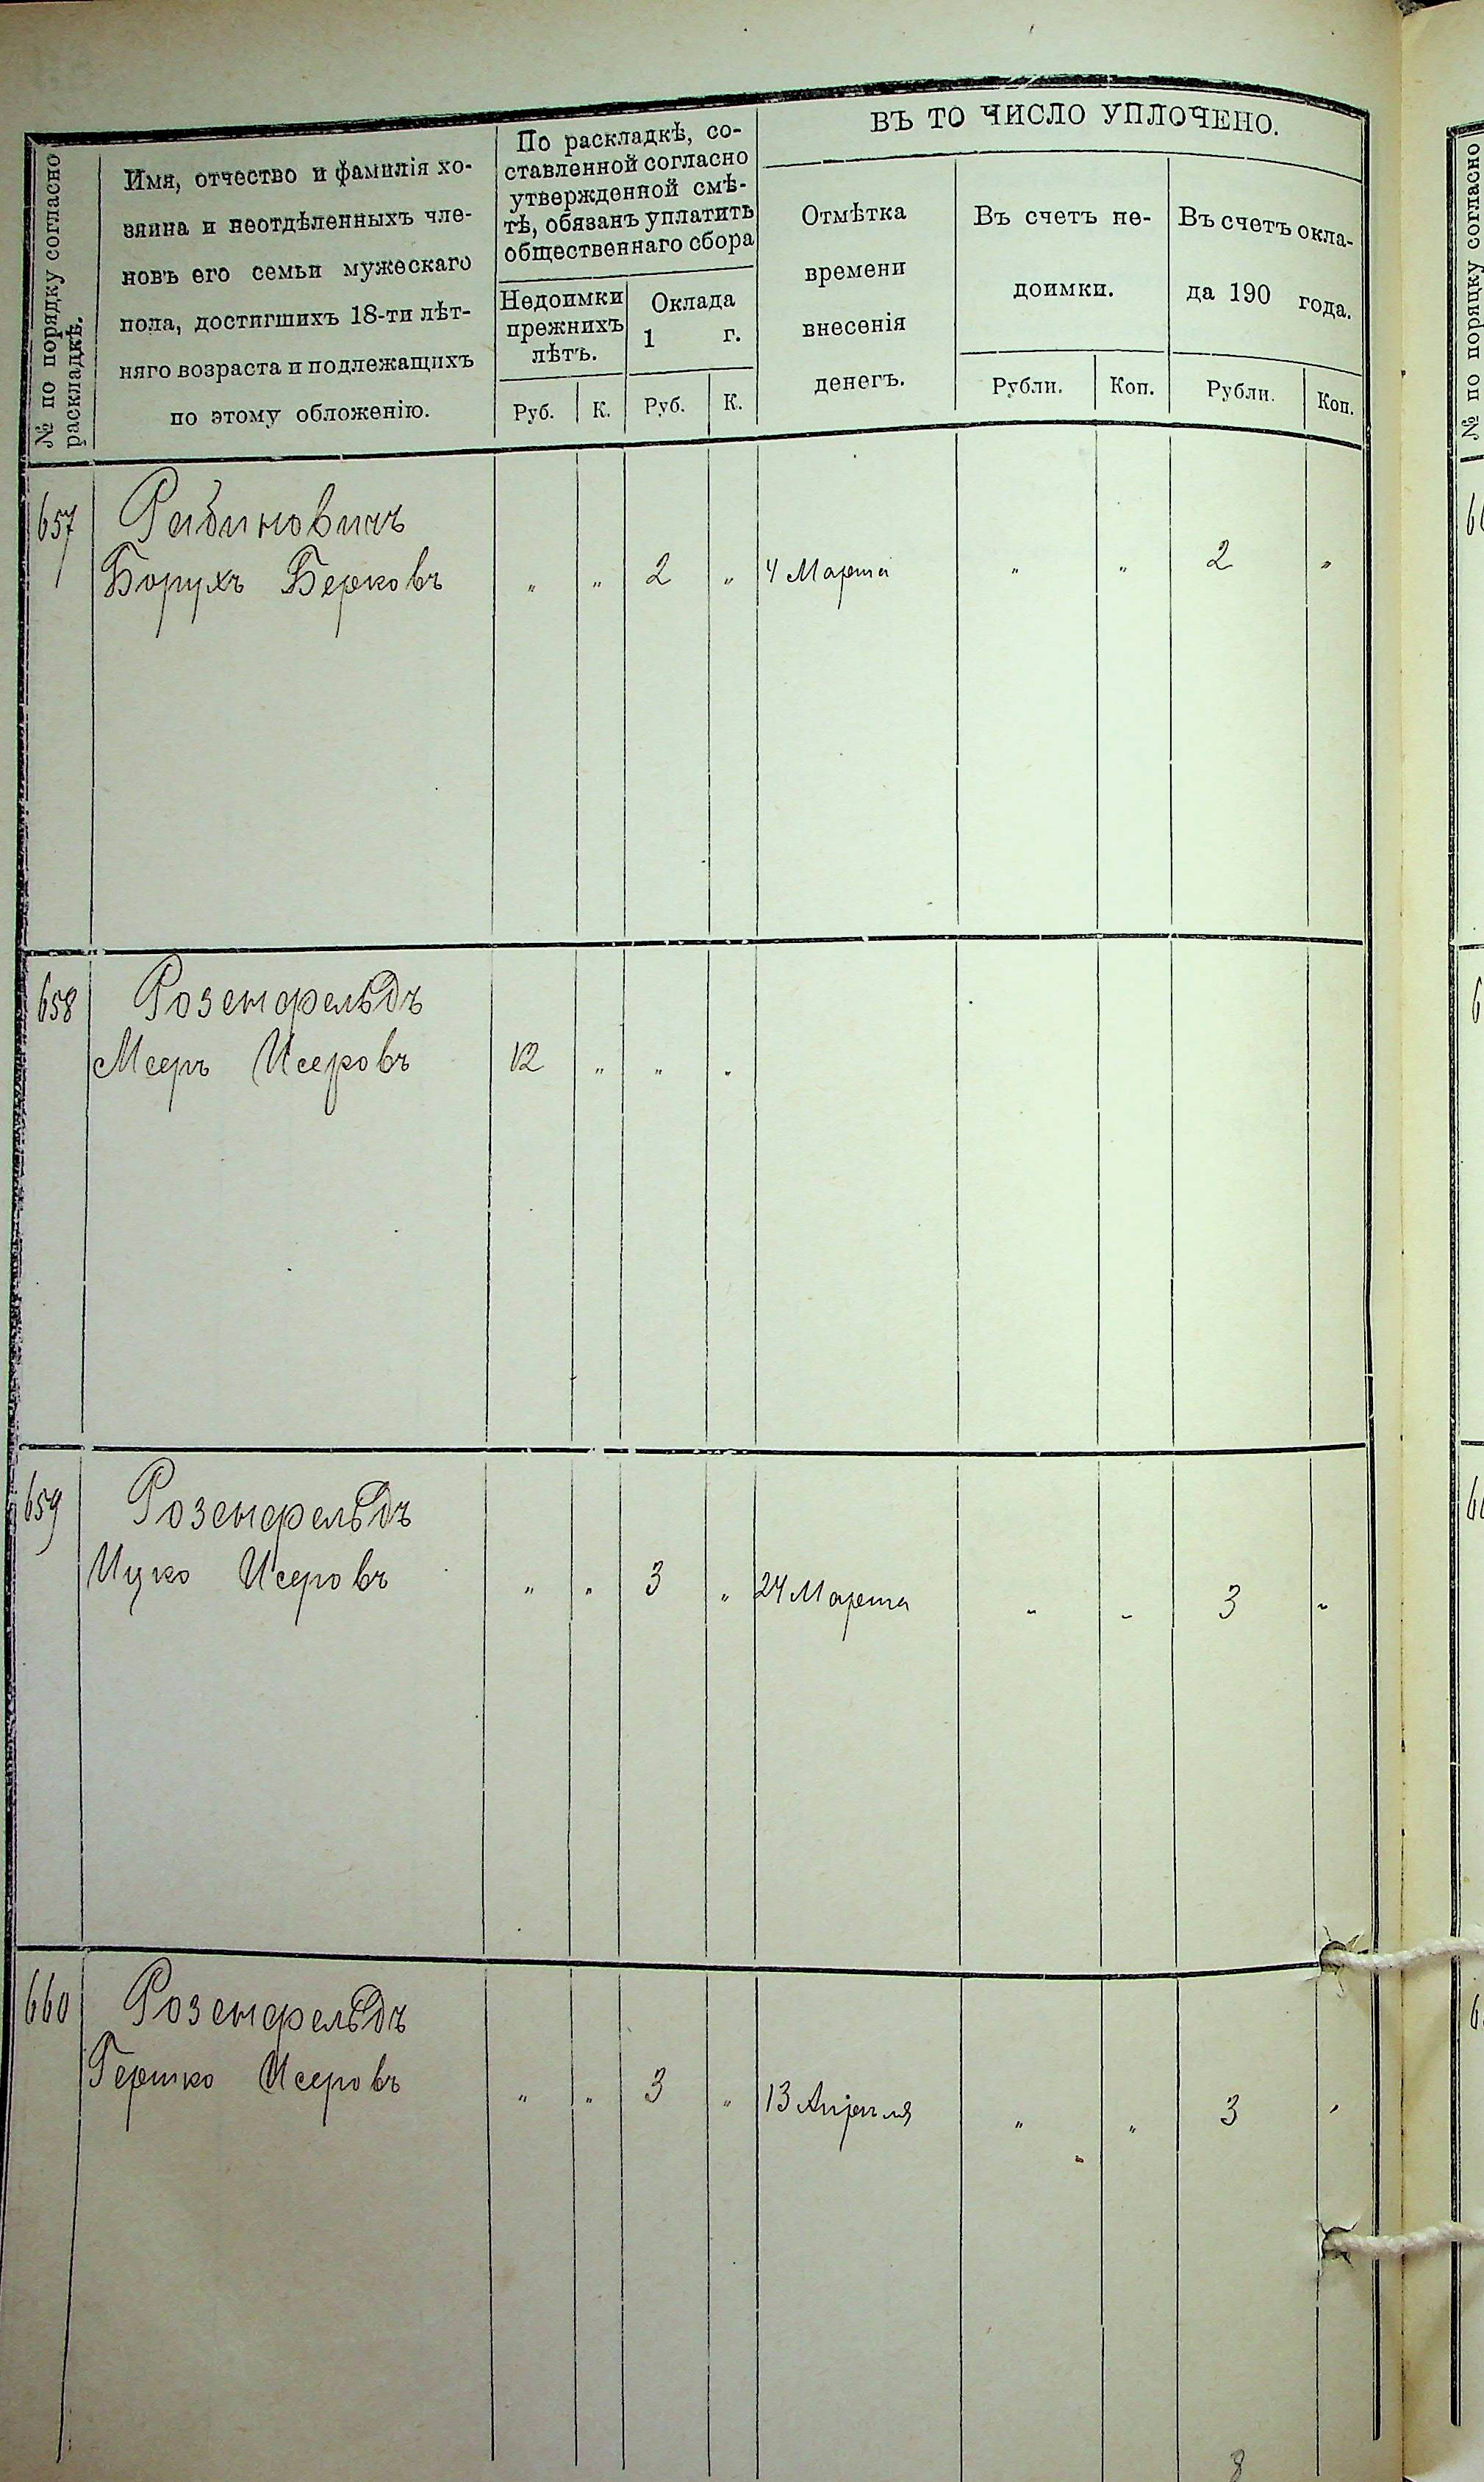 № по порядку согласно
раскладкѣ.
Имя, отчество и фамилія хо-
зяина и неотдѣленныхъ чле-
новъ его семьи мужескаго
пола, достигшихъ 18-ти лѣт-
няго возраста и подлежащихъ
по этому обложенію.
По раскладкѣ, со-
ставленной согласно
утвержденной смѣ-
тѣ, обязанъ уплатить
общественнаго сбора
Недоимки
прежнихъ
лѣтъ.
Оклада
1 г.
Руб. К. Руб. К.
ВЪ ТО ЧИСЛО УПЛОЧЕНО.
Отмѣтка
времени
внесенія
денегъ.
Въ счетъ не-
доимки.
Рубли. Коп.
Въ счетъ окла-
да 190 года.
Рубли. Коп.
657 Рабиновичъ
Борухъ Берковъ „ „ 2 „ 4 Марта „ „ 2 „
658 Розенфельдъ
Мееръ Исеровъ 12 „ „ „
659 Розенфельдъ
Ицко Исеровъ „ „ 3 „ 24 Марта „ „ 3 „
660 Розенфельдъ
Гершко Исеровъ „ „ 3 „ 13 Апрѣля „ „ 3 „
8
№ по порядку согласно